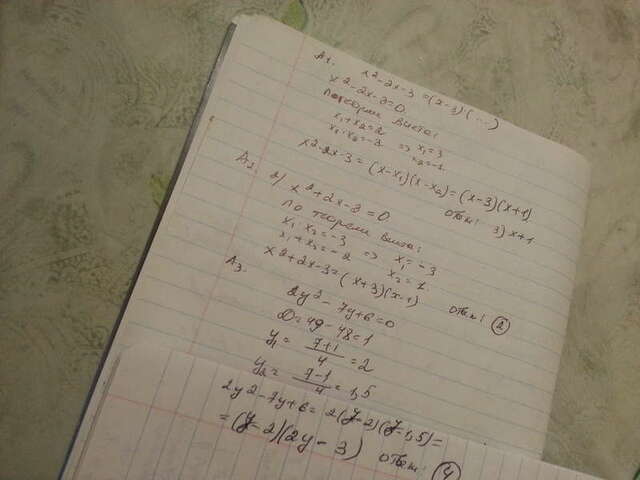 А1. x²-2x-3=(x-3)(...)
x²-2x-3=0
По теореме Виета:
x₁+x₂=2
x₁·x₂=-3 => x₁=3
x₂=-1
x²-2x-3=(x-x₁)(x-x₂)=(x-3)(x+1)
Ответ: 3) x+1
А2. 2) x²+2x-3=0
по теореме Виета:
x₁·x₂=-3
x₁+x₂=-2 => x₁=-3
x₂=1
x²+2x-3=(x+3)(x-1)
Ответ: 2
А3. 2y²-7y+6=0
D=49-48=1
y₁=7+1/4=2
y₂=7-1/4=1,5
2y²-7y+6=2(y-2)(y-1,5)=
=(y-2)(2y-3)
Ответ: 4